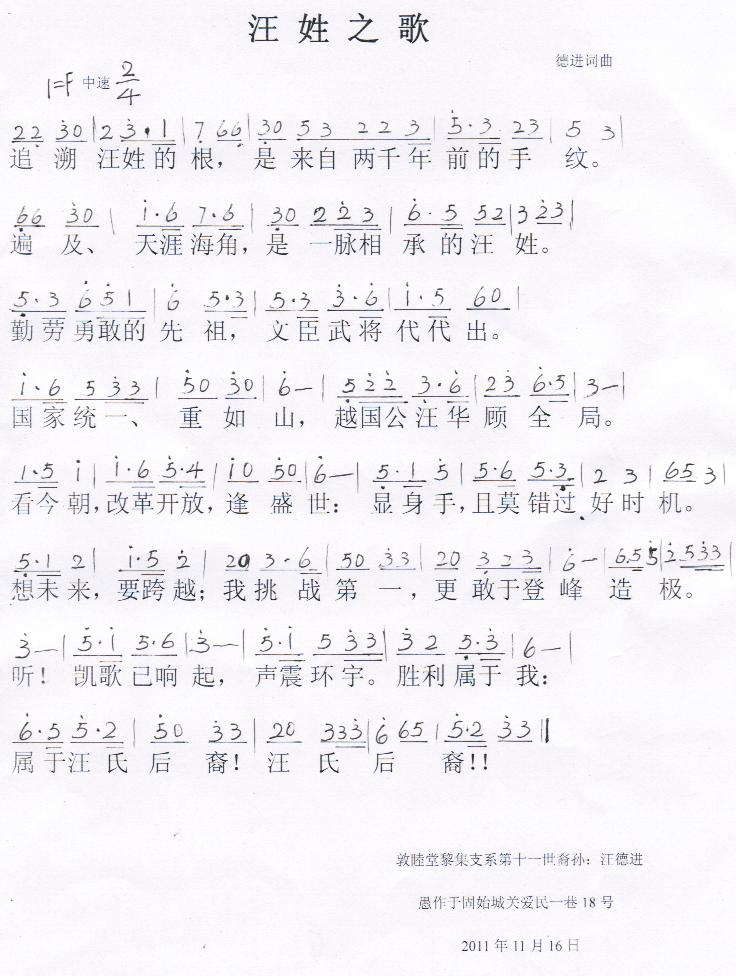 汪姓之歌
德进词曲
1=F 中速 2/4
22 30 | 2 3·1 | 7 66 | 30 53 22 3 | 5·3 23 | 5 3 |
追溯汪姓的根，是来自两千年前的手纹。
66 30 | 1·6 7·6 | 30 2 23 | 6·5 52 | 3 23 |
遍及、天涯海角，是一脉相承的汪姓。
5·3 651 | 6 5·3 | 5·3 3·6 | 1·5 60 |
勤劳勇敢的先祖，文臣武将代代出。
1·6 533 | 50 30 | 6— | 522 3·6 | 23 6·5 | 3— |
国家统一、重如山，越国公汪华顾全局。
1·5 1 | 1·6 5·4 | 10 50 | 6— | 5·1 5 | 5·6 5·3 | 2 3 | 65 3 |
看今朝，改革开放，逢盛世：显身手，且莫错过好时机。
5·1 2 | 1·5 2 | 20 3·6 | 50 33 | 20 323 | 6— | 6·55 | 2533 |
想未来，要跨越；我挑战第一，更敢于登峰造极。
3— | 5·1 5·6 | 3— | 5·1 533 | 32 5·3 | 6— |
听！凯歌已响起，声震环宇。胜利属于我：
6·5 5·2 | 50 33 | 20 333 | 6 65 | 5·2 33 ‖
属于汪氏后裔！汪氏后裔！！
敦睦堂黎集支系第十一世裔孙：汪德进
愚作于固始城关爱民一巷18号
2011年11月16日